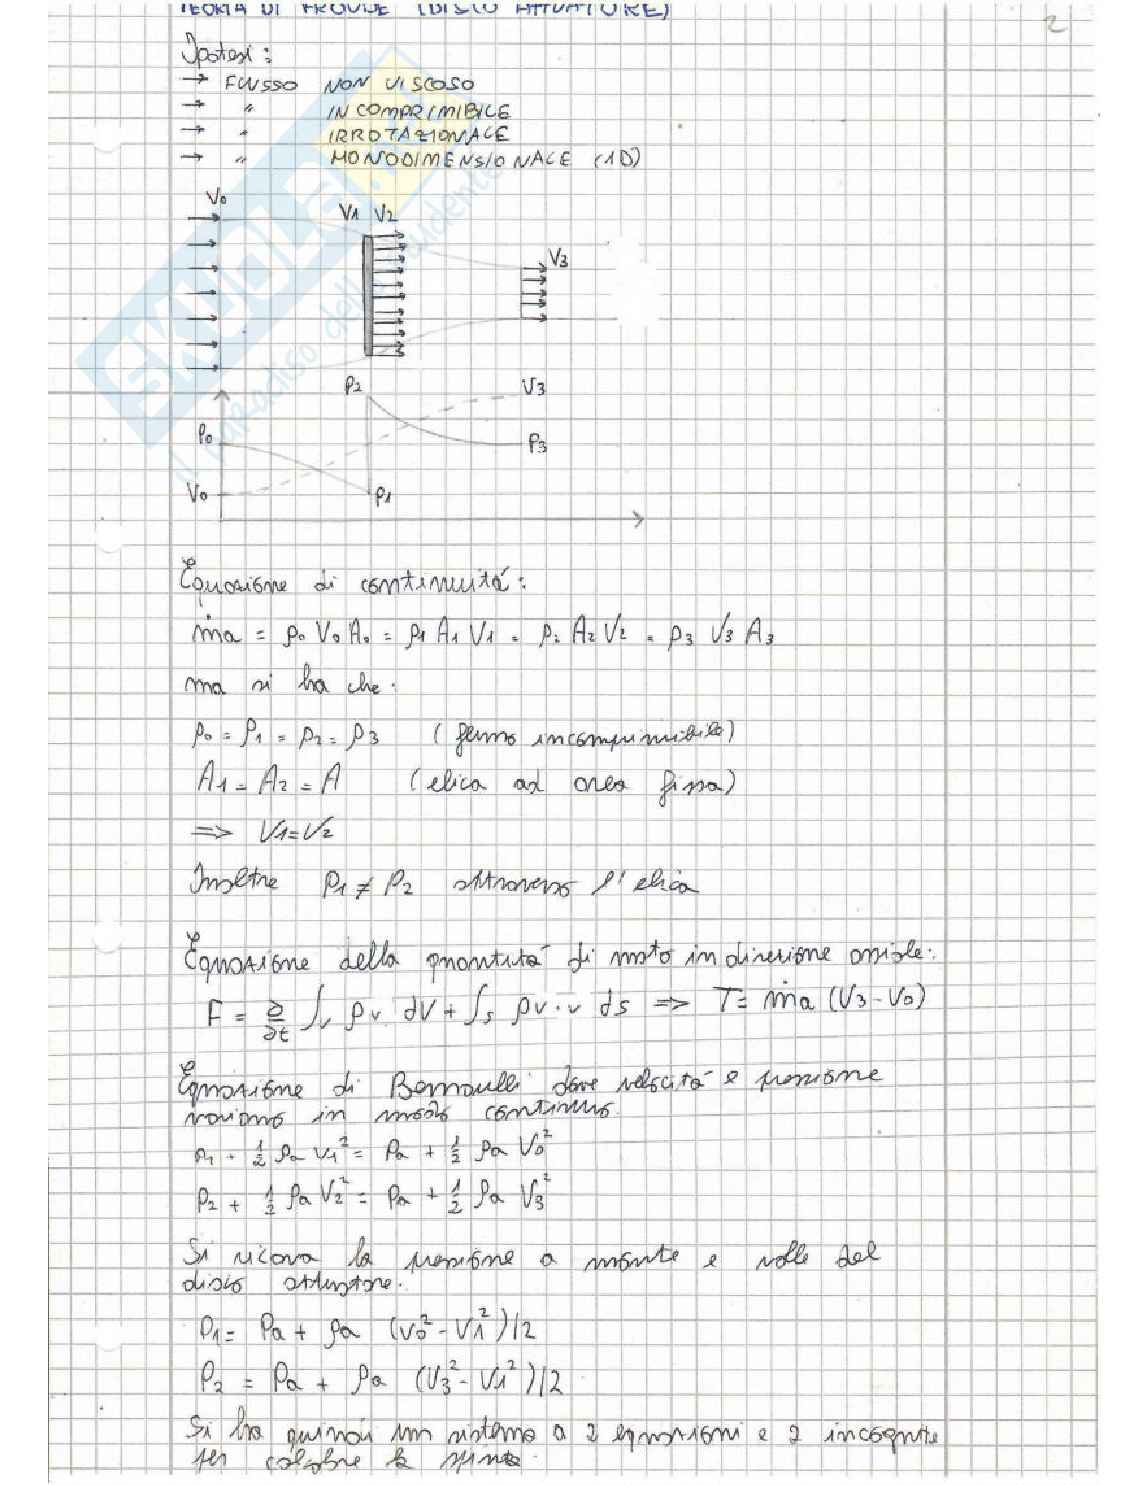 TEORIA DI FROUDE (DISCO ATTUATORE)
2
Ipotesi:
→ FLUSSO NON VISCOSO
→ " INCOMPRIMIBILE
→ " IRROTAZIONALE
→ " MONODIMENSIONALE (1D)
V0
V1 V2
V3
P2
V3
P0
P3
V0
P1
Equazione di continuitá:
ṁa = ρ0 V0 A0 = ρ1 A1 V1 = ρ2 A2 V2 = ρ3 V3 A3
ma si ha che:
ρ0 = ρ1 = ρ2 = ρ3 (flusso incomprimibile)
A1 = A2 = A (elica ad area fissa)
=> V1=V2
Inoltre P1 ≠ P2 attraverso l'elica
Equazione della quantitá di moto in direzione assiale:
F = ∂/∂t ∫v ρv dV + ∫s ρv·v ds => T= ṁa (V3-V0)
Equazione di Bernoulli dove velocitá e pressione
variano in modo continuo.
P1 + 1/2 ρa V1² = Pa + 1/2 ρa V0²
P2 + 1/2 ρa V2² = Pa + 1/2 ρa V3²
Si ricava la pressione a monte e valle del
disco attuatore.
P1= Pa + ρa (V0² - V1²)/2
P2 = Pa + ρa (V3² - V1²)/2
Si ha quindi un sistema a 2 equazioni e 2 incognite
per calcolare la spinta.
SKUOLA.net
il paradiso dello studente